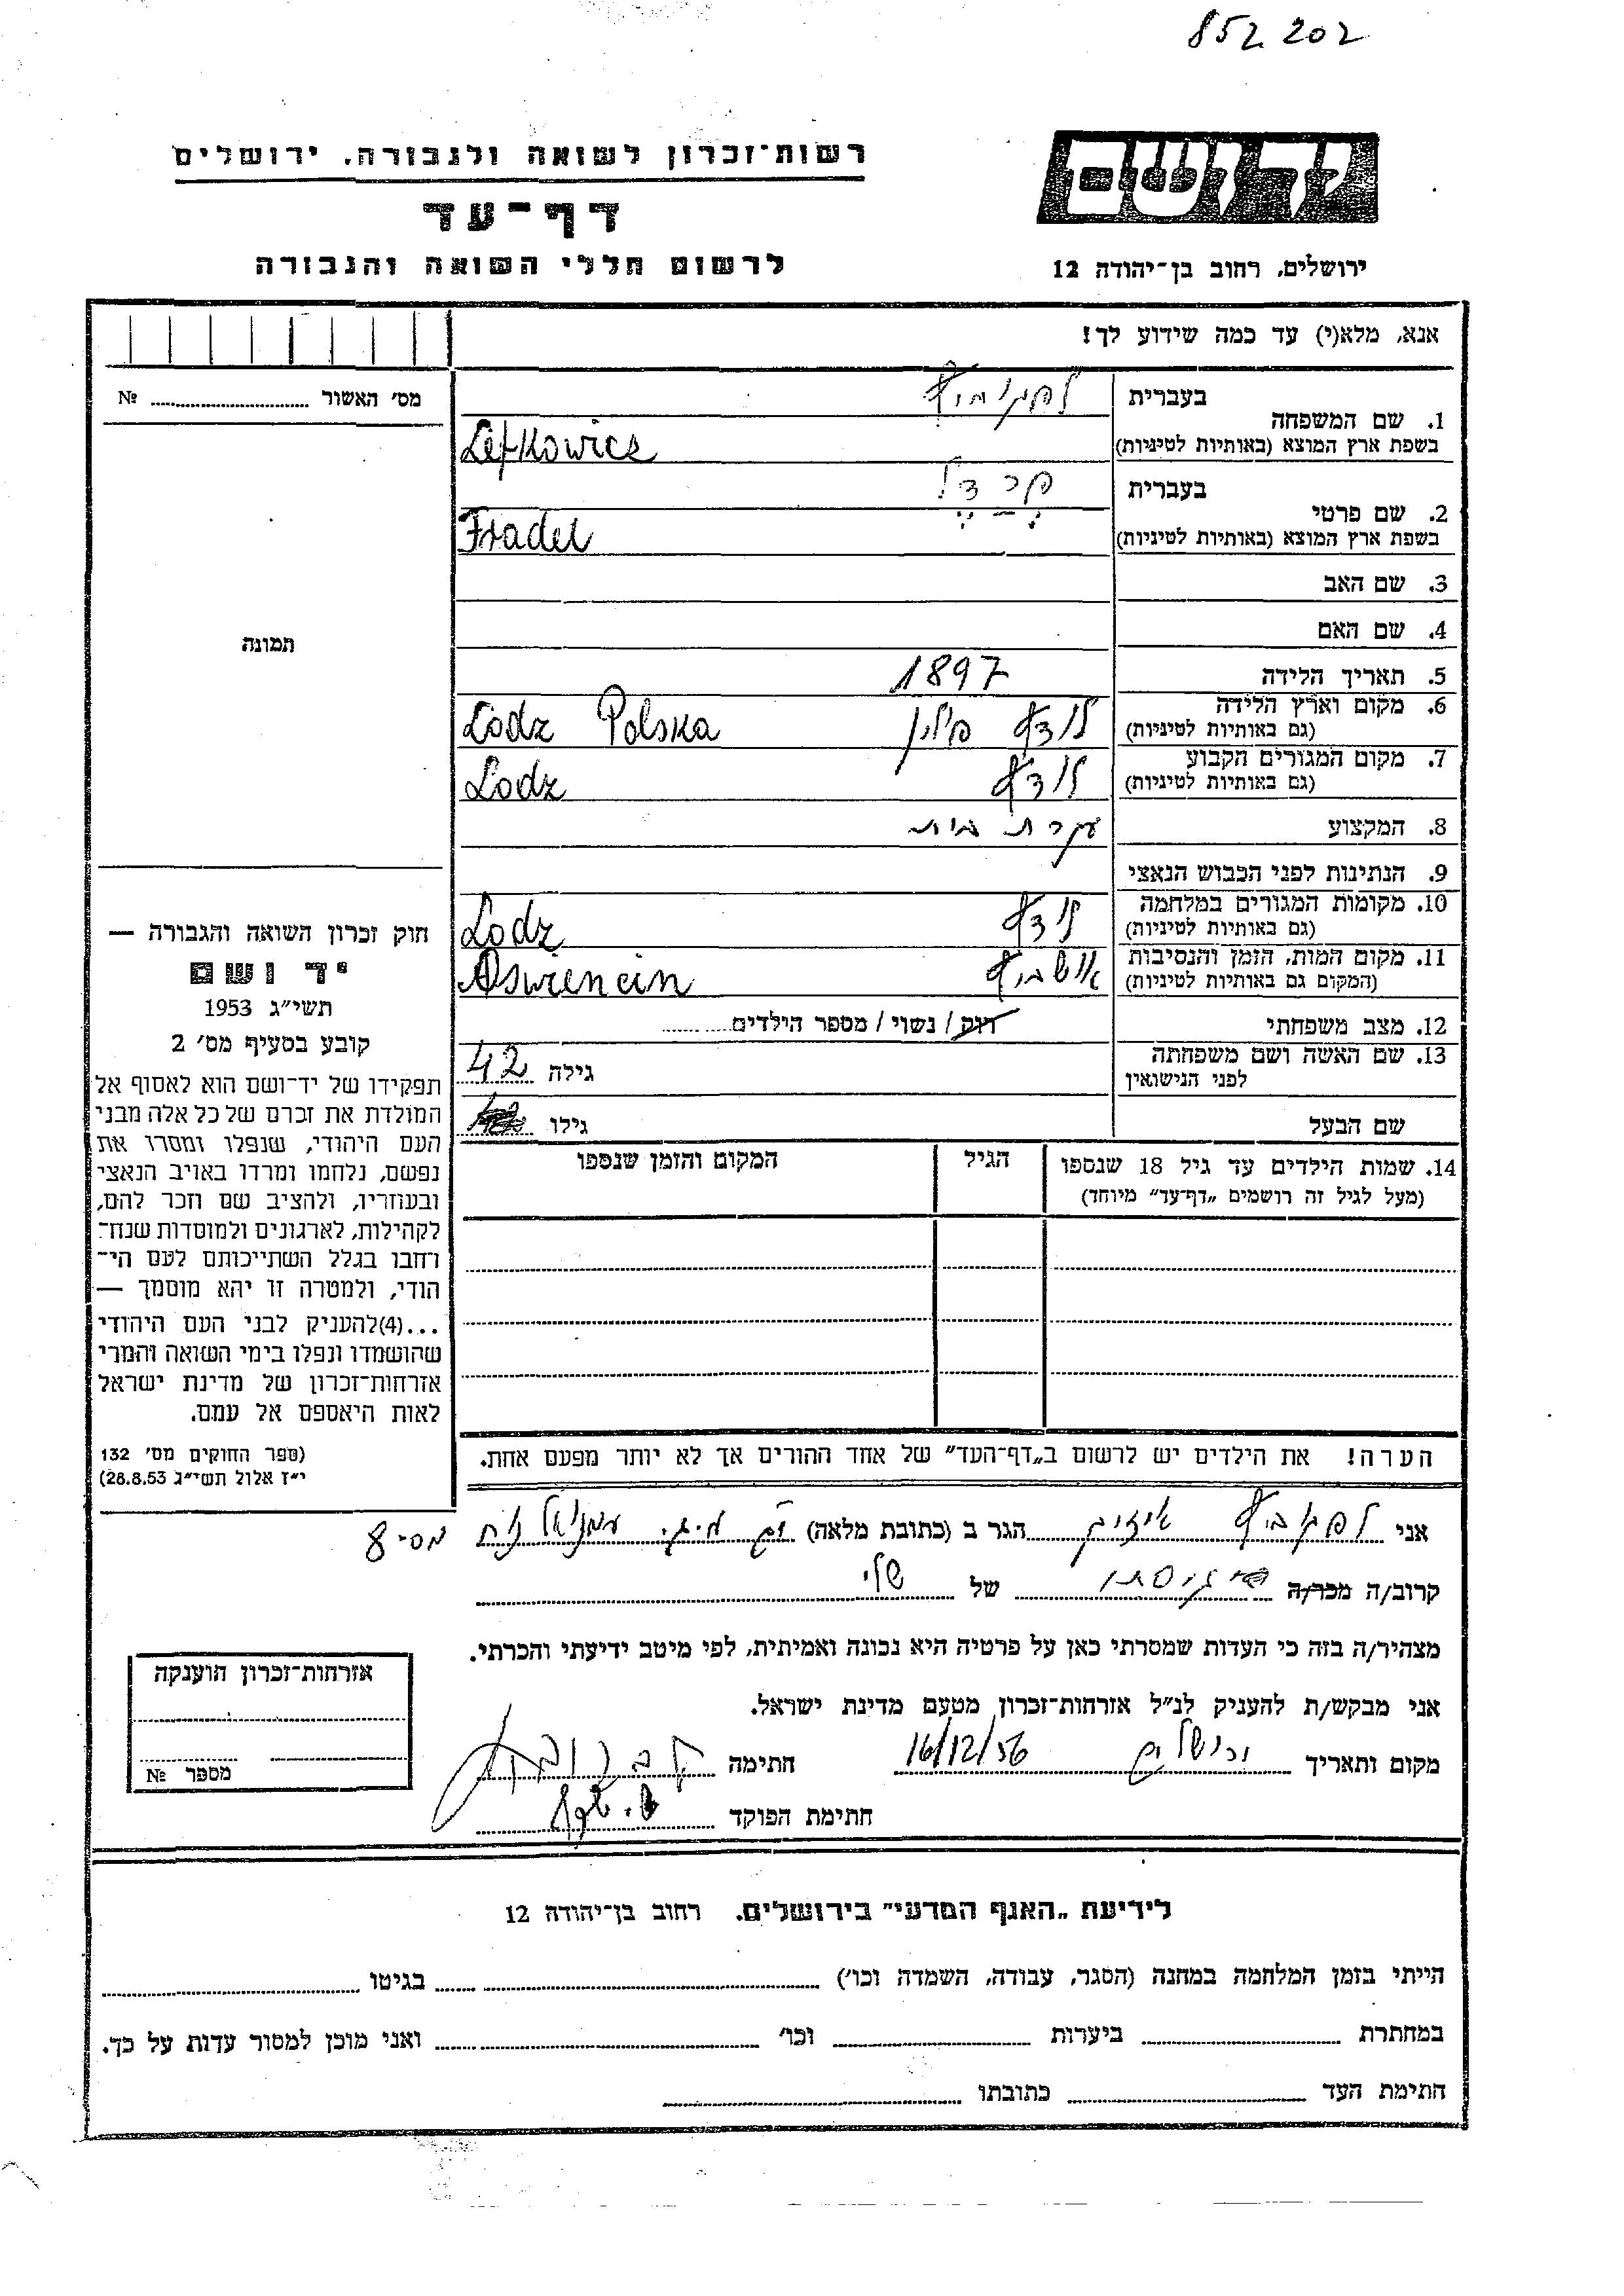 852 202
רשות־זכרון לשואה ולגבורה, ירושלים
דף־עד
לרשום חללי השואה והגבורה
יד ושם
ירושלים, רחוב בן־יהודה 12
אנא, מלא(י) עד כמה שידוע לך!
מס׳ האשור ............ №
תמונה
חוק זכרון השואה והגבורה —
יד ושם
תשי״ג 1953
קובע בסעיף מס׳ 2
תפקידו של יד־ושם הוא לאסוף אל
המולדת את זכרם של כל אלה מבני
העם היהודי, שנפלו ומסרו את
נפשם, נלחמו ומרדו באויב הנאצי
ובעוזריו, ולהציב שם וזכר להם,
לקהילות, לארגונים ולמוסדות שנח־
רחבו בגלל השתייכותם לעם הי־
הודי, ולמטרה זו יהא מוסמך —
...(4)להעניק לבני העם היהודי
שהושמדו ונפלו בימי השואה והמרי
אזרחות־זכרון של מדינת ישראל
לאות היאספם אל עמם.
(ספר החוקים מס׳ 132
י״ז אלול תשי״ג 28.8.53)
1. שם המשפחה
בעברית לפקוביץ
בשפת ארץ המוצא (באותיות לטיניות) Lefkowice
2. שם פרטי
בעברית פרדל
בשפת ארץ המוצא (באותיות לטיניות) Fradel
3. שם האב
4. שם האם
5. תאריך הלידה 1897
6. מקום וארץ הלידה לודץ פולין Lodz Polska
(גם באותיות לטיניות)
7. מקום המגורים הקבוע לודץ Lodz
(גם באותיות לטיניות)
8. המקצוע עקרת בית
9. הנתינות לפני הכבוש הנאצי
10. מקומות המגורים במלחמה לודץ Lodz
(גם באותיות לטיניות)
11. מקום המות, הזמן והנסיבות אושביץ Oswiencin
(המקום גם באותיות לטיניות)
12. מצב משפחתי רווק / נשוי / מספר הילדים........
13. שם האשה ושם משפחתה גילה 42
לפני הנישואין
שם הבעל גילו
14. שמות הילדים עד גיל 18 שנספו הגיל המקום והזמן שנספו
(מעל לגיל זה רושמים „דף־עד״ מיוחד)
הערה! את הילדים יש לרשום ב„דף־העד״ של אחד ההורים אך לא יותר מפעם אחת.
אני לפקוביץ איזיק הגר ב (כתובת מלאה)
קרוב/ה מכר/ה גיסתו של שלי
מצהיר/ה בזה כי העדות שמסרתי כאן על פרטיה היא נכונה ואמיתית, לפי מיטב ידיעתי והכרתי.
אני מבקש/ת להעניק לנ״ל אזרחות־זכרון מטעם מדינת ישראל.
מקום ותאריך ירושלים 16/12/56 חתימה
חתימת הפוקד
אזרחות־זכרון הוענקה
מספר №
לידיעת „האגף המדעי״ בירושלים, רחוב בן־יהודה 12
הייתי בזמן המלחמה במחנה (הסגר, עבודה, השמדה וכו׳) ............ בגיטו ............
במחתרת ............ ביערות ............ וכו׳ ............ ואני מוכן למסור עדות על כך.
חתימת העד ............ כתובתו ............